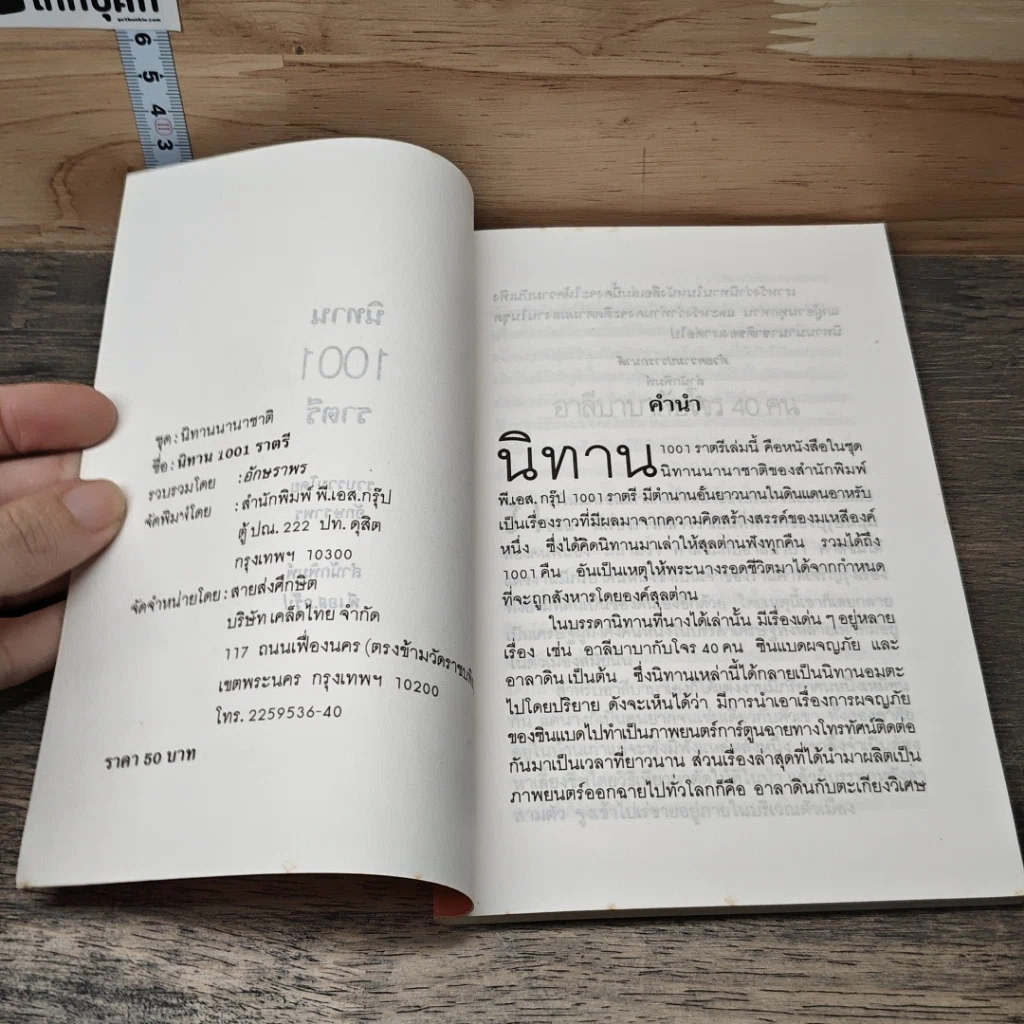 6
5
4
11
3
ชุด : นิทานนานาชาติ
ชื่อ : นิทาน 1001 ราตรี
รวบรวมโดย : อักษราพร
จัดพิมพ์โดย : สำนักพิมพ์ พี.เอส.กรุ๊ป
ตู้ ปณ. 222 ปท. ดุสิต
กรุงเทพฯ 10300
จัดจำหน่ายโดย : สายส่งศึกษิต
บริษัท เคล็ดไทย จำกัด
117 ถนนเฟื่องนคร (ตรงข้ามวัดราชบพิธ
เขตพระนคร กรุงเทพฯ 10200
โทร. 2259536-40
ราคา 50 บาท
คำนำ
นิทาน 1001 ราตรีเล่มนี้ คือหนังสือในชุด
นิทานนานาชาติของสำนักพิมพ์
พี.เอส. กรุ๊ป 1001 ราตรี มีตำนานอันยาวนานในดินแดนอาหรับ
เป็นเรื่องราวที่มีผลมาจากความคิดสร้างสรรค์ของมเหสีองค์
หนึ่ง ซึ่งได้คิดนิทานมาเล่าให้สุลต่านฟังทุกคืน รวมได้ถึง
1001 คืน อันเป็นเหตุให้พระนางรอดชีวิตมาได้จากกำหนด
ที่จะถูกสังหารโดยองค์สุลต่าน
ในบรรดานิทานที่นางได้เล่านั้น มีเรื่องเด่น ๆ อยู่หลาย
เรื่อง เช่น อาลีบาบากับโจร 40 คน ซินแบดผจญภัย และ
อาลาดิน เป็นต้น ซึ่งนิทานเหล่านี้ได้กลายเป็นนิทานอมตะ
ไปโดยปริยาย ดังจะเห็นได้ว่า มีการนำเอาเรื่องการผจญภัย
ของซินแบดไปทำเป็นภาพยนตร์การ์ตูนฉายทางโทรทัศน์ติดต่อ
กันมาเป็นเวลาที่ยาวนาน ส่วนเรื่องล่าสุดที่ได้นำมาผลิตเป็น
ภาพยนตร์ออกฉายไปทั่วโลกก็คือ อาลาดินกับตะเกียงวิเศษ